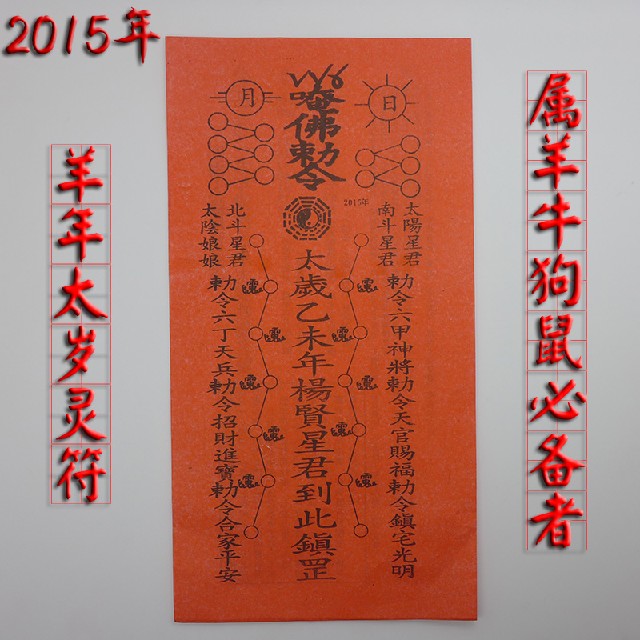 2015年
属羊牛狗鼠必备者
羊年太岁灵符
唵佛勅令
日
月
2015年
太陽星君
南斗星君
北斗星君
太陰娘娘
勅令六甲神將勅令天官賜福勅令鎮宅光明
太歲乙未年楊賢星君到此鎮罡
勅令六丁天兵勅令招財進寶勅令合家平安